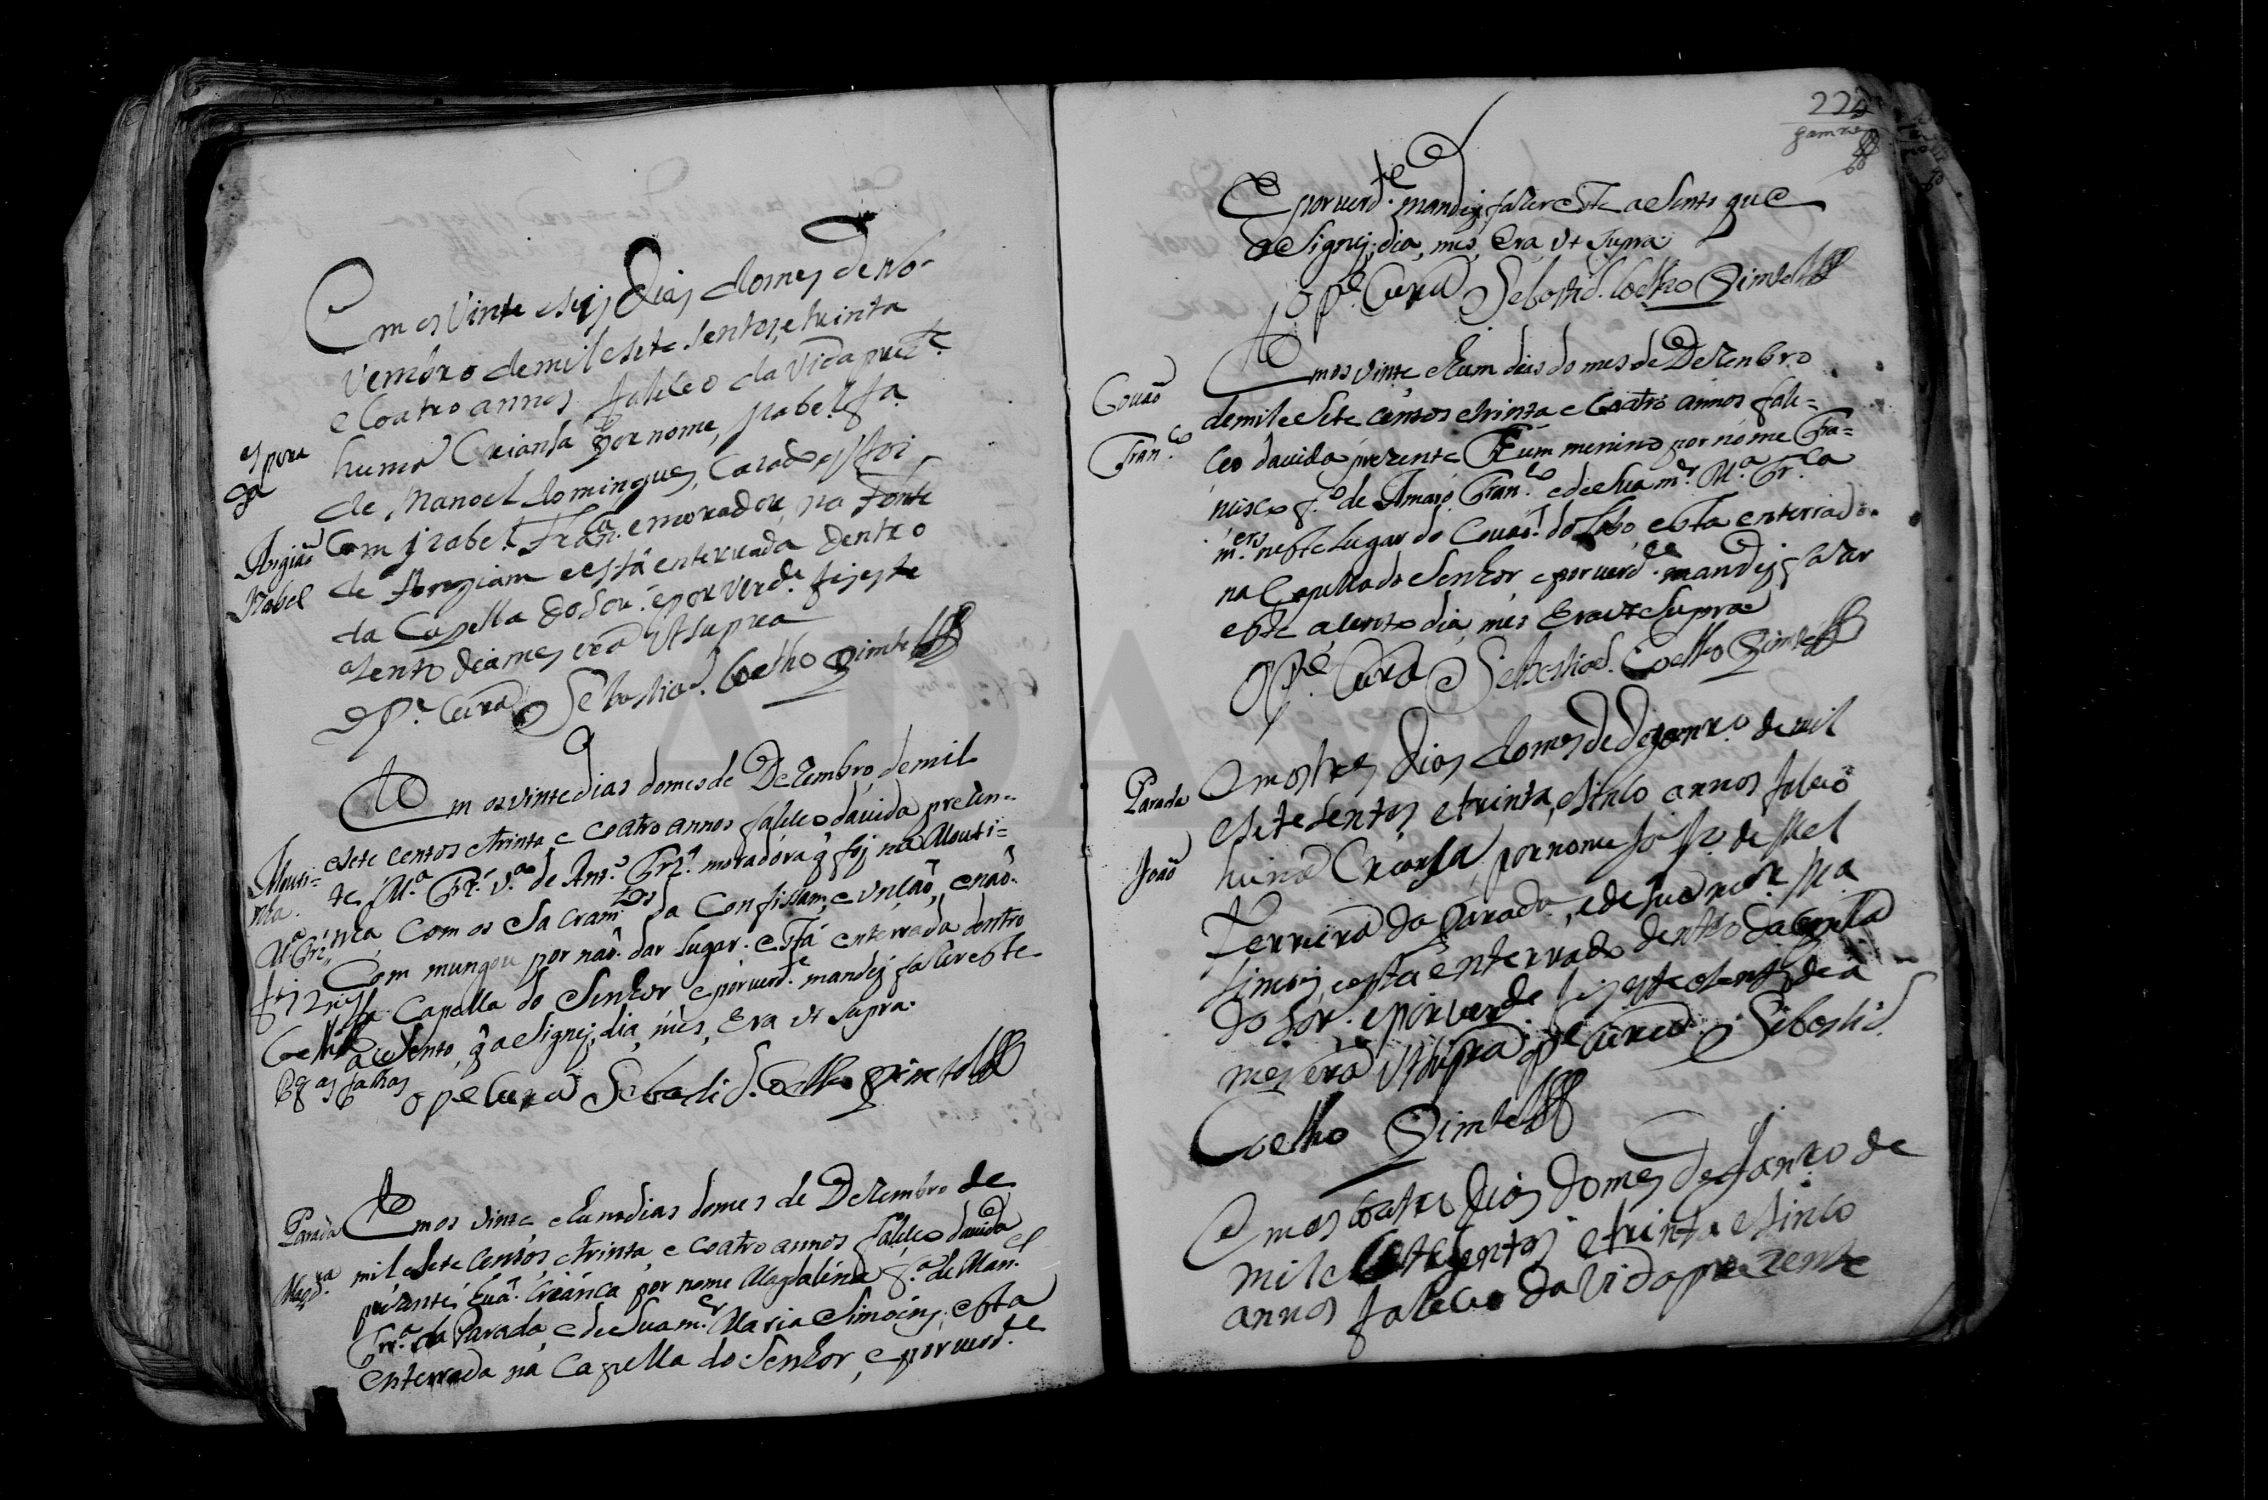 Em os Vinte e seis Dias do mes de No-
vembro de mil e sete sentos, e trinta
e Coatro annos faleceo da Vida prez.te
huma Criansa por nome, Izabel fa.
de Manoel domingues, Cazado q foi
Com Izabel Fran.ca e morador na Fonte
de e está enterrada dentro
da Capella do Sor. e por Verd.e fiz este
asento dia mes era Vt supra
O P.e Cura Sebastiaõ Coelho Pimtel
Izabel
Em os vinte dias do mes de Dezembro de mil
e sete centos e trinta e coatro annos faleceo da vida prezen-
te M.a Frz. v.a de Ant.o Frz. moradora q foj na Mouti-
nha Com os Sacram.tos da Confissam, e vnçaõ, e naõ
Com mungou por naõ dar lugar. está enterrada dentro
na Capella do Senhor e por verd.e mandej fazer este
asento q asignej, dia, mes, Era vt supra.
o P.e Cura Sebastiaõ Coelho Pimtel
Mouti=
nha.
M.a Frz.
Coelho
Parada
Magd.na
Em os vinte e hum dias do mes de Dezembro de
mil e sete centos, e trinta, e coatro annos faleceo da vida
prezente, huã Criança por nome Magdalena f.a de Man.el
Frr.a da Parada e de sua m.er Maria Simoins, esta
enterrada na Capella do Senhor, e por verd.e
222
E por verd.e mandej fazer este asento que
asignej, dia, mes, Era, vt supra
O P.e Cura Sebastiaõ Coelho Pimtel
Couaõ
Fran.co
Em os vinte e hum dias do mes de Dezenbro
de mil e sete centos e trinta e coatro annos fale=
ceo da vida prezente hum menino por nome Fra=
nisco f.o de Amaro Fran.co e de sua m.er M.a Fr.ca
m.ers neste lugar do Couaõ do Lobo esta enterrado
na Capella do Senhor, e por verd.e mandej fazer
este asento dia, mes Era vt supra
O P.e Cura Sebastiaõ Coelho Pimtel
Parada
Joaõ
Em os tres Dias do mes de de mil
e sete sentos e trinta, e sinco annos faleceo
huma Criansa, por nome Joaõ f.o de Mel
Ferreira da Parada, e de sua molher Ma
Simois, esta enterrado dentro da Capella
do Sor. e por verde fiz este asento dia
mes era Vt supra o P.e Cura Sebastiaõ
Coelho Pimtel
Em os coatro dias do mes de Janro de
mil e sete sentos e trinta e sinco
annos faleceo da Vida prezente